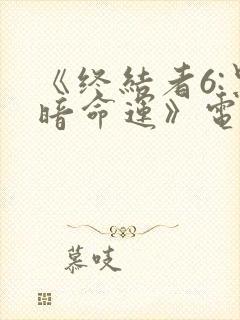 《终結者6:黑
暗命運》電
慕吱